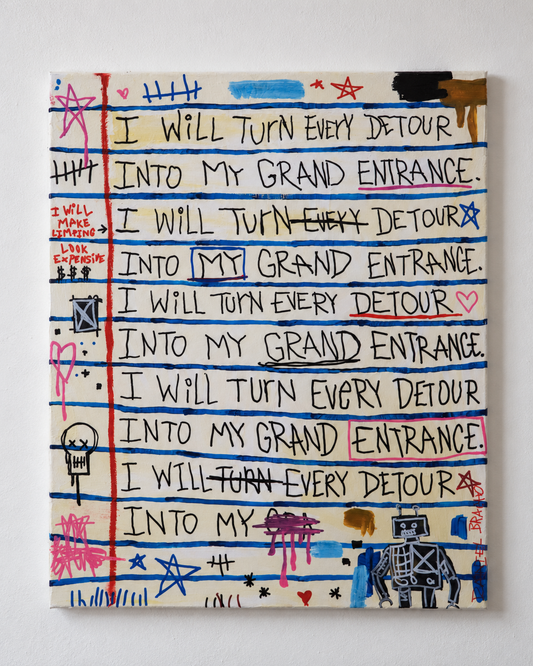 I WiLL TURN EVERY DETOUR
INTO MY GRAND ENTRANCE.
I WiLL TURN EVERY DETOUR
INTO MY GRAND ENTRANCE.
I WILL TURN EVERY DETOUR
INTO MY GRAND ENTRANCE.
I WILL TURN EVERY DETOUR
INTO MY GRAND ENTRANCE.
I WILL TURN EVERY DETOUR
INTO MY
I WiLL
MAKE
LIMPING →
LOOK
EXPENSIVE
$ $ $